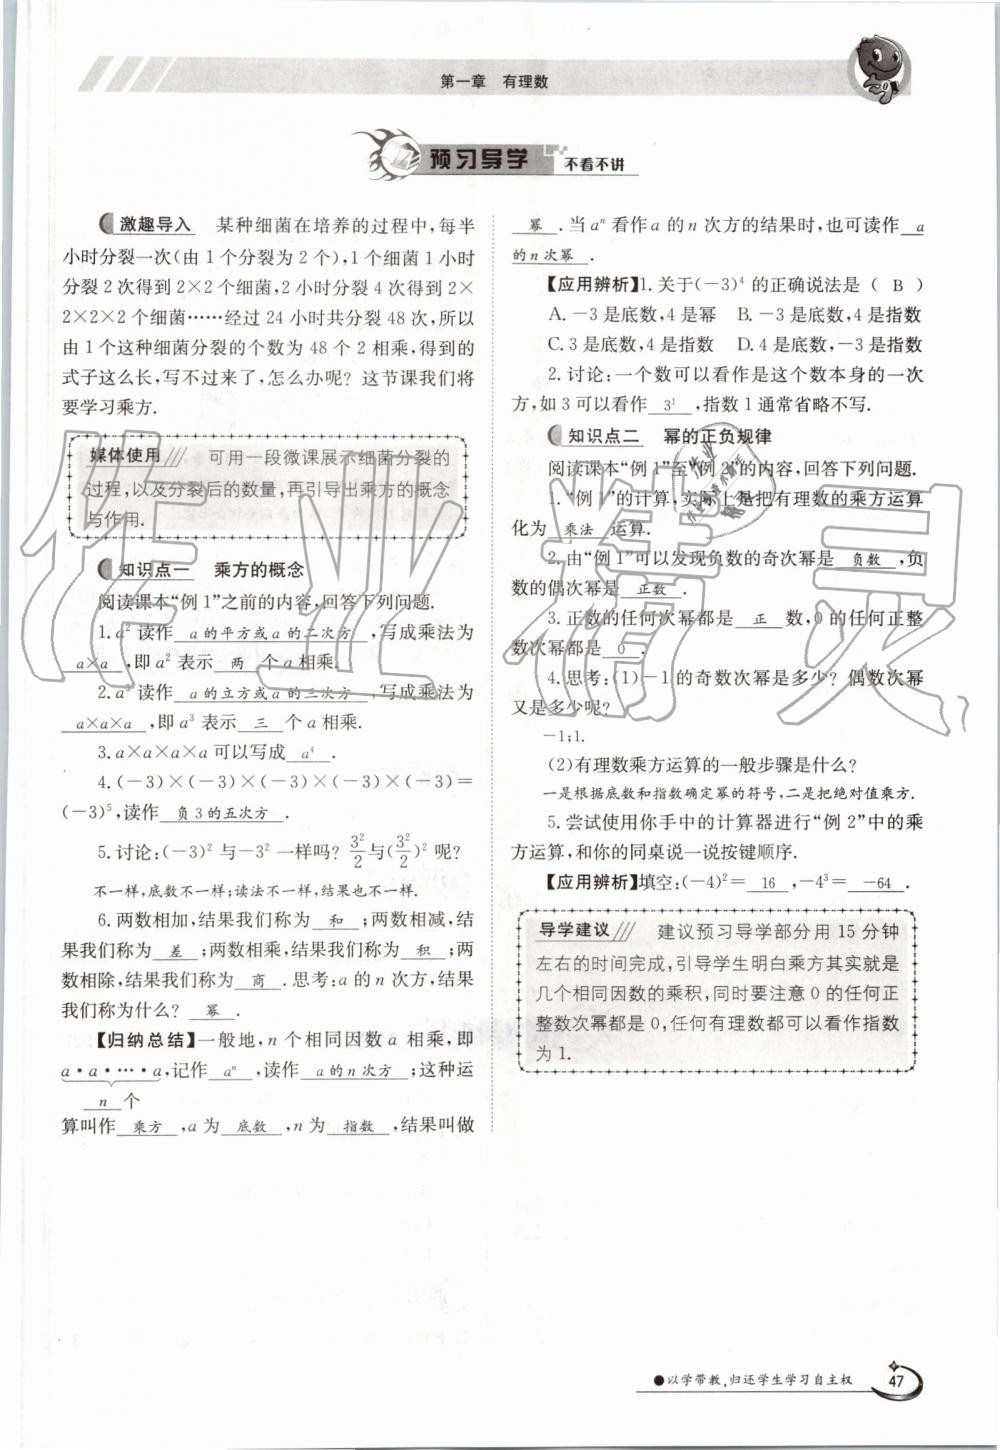 第一章 有理数
预习导学 不看不讲
激趣导入 某种细菌在培养的过程中,每半
小时分裂一次(由1个分裂为2个),1个细菌1小时
分裂2次得到2×2个细菌,2小时分裂4次得到2×
2×2×2个细菌……经过24小时共分裂48次,所以
由1个这种细菌分裂的个数为48个2相乘,得到的
式子这么长,写不过来了,怎么办呢?这节课我们将
要学习乘方.
媒体使用 可用一段微课展示细菌分裂的
过程,以及分裂后的数量,再引导出乘方的概念
与作用.
知识点一 乘方的概念
阅读课本“例1”之前的内容,回答下列问题.
1.a²读作 a的平方或a的二次方 ,写成乘法为
a×a ,即a²表示 两 个a相乘.
2.a³读作 a的立方或a的三次方 ,写成乘法为
a×a×a ,即a³表示 三 个a相乘.
3.a×a×a×a可以写成 a⁴ .
4.(-3)×(-3)×(-3)×(-3)×(-3)=
(-3)⁵,读作 负3的五次方 .
5.讨论:(-3)²与-3²一样吗?3²/2与(3/2)²呢?
不一样,底数不一样;读法不一样,结果也不一样.
6.两数相加,结果我们称为 和 ;两数相减,结
果我们称为 差 ;两数相乘,结果我们称为 积 ;两
数相除,结果我们称为 商 .思考:a的n次方,结果
我们称为什么? 幂 .
【归纳总结】一般地,n个相同因数a相乘,即
a·a·…·a,记作 aⁿ ,读作 a的n次方 ;这种运
n 个
算叫作 乘方 ,a为 底数 ,n为 指数 ,结果叫做
幂 .当aⁿ看作a的n次方的结果时,也可读作 a
的n次幂 .
【应用辨析】1.关于(-3)⁴的正确说法是( B )
A.-3是底数,4是幂 B.-3是底数,4是指数
C.3是底数,4是指数 D.4是底数,-3是指数
2.讨论:一个数可以看作是这个数本身的一次
方,如3可以看作 3¹ ,指数1通常省略不写.
知识点二 幂的正负规律
阅读课本“例1”至“例2”的内容,回答下列问题.
1.“例1”的计算,实际上是把有理数的乘方运算
化为 乘法 运算.
2.由“例1”可以发现负数的奇次幂是 负数 ,负
数的偶次幂是 正数 .
3.正数的任何次幂都是 正 数,0的任何正整
数次幂都是 0 .
4.思考:(1)-1的奇数次幂是多少?偶数次幂
又是多少呢?
-1;1.
(2)有理数乘方运算的一般步骤是什么?
一是根据底数和指数确定幂的符号,二是把绝对值乘方.
5.尝试使用你手中的计算器进行“例2”中的乘
方运算,和你的同桌说一说按键顺序.
【应用辨析】填空:(-4)²= 16 ,-4³= -64 .
导学建议 建议预习导学部分用15分钟
左右的时间完成,引导学生明白乘方其实就是
几个相同因数的乘积,同时要注意0的任何正
整数次幂都是0,任何有理数都可以看作指数
为1.
作业精灵
●以学带教,归还学生学习自主权 47